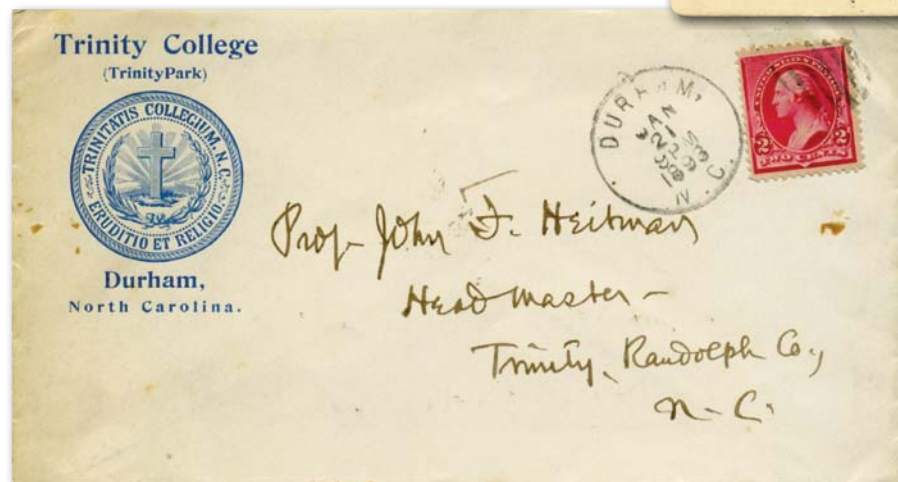 Trinity College
(Trinity Park)
TRINITATIS COLLEGIUM, N.C.
ERUDITIO ET RELIGIO
Durham,
North Carolina.
DURHAM,
N. C.
JAN
UNITED STATES POSTAGE
2 2
TWO CENTS
Prof John F. Heitman
Head Master -
Trinity, Randolph Co.,
N. C.